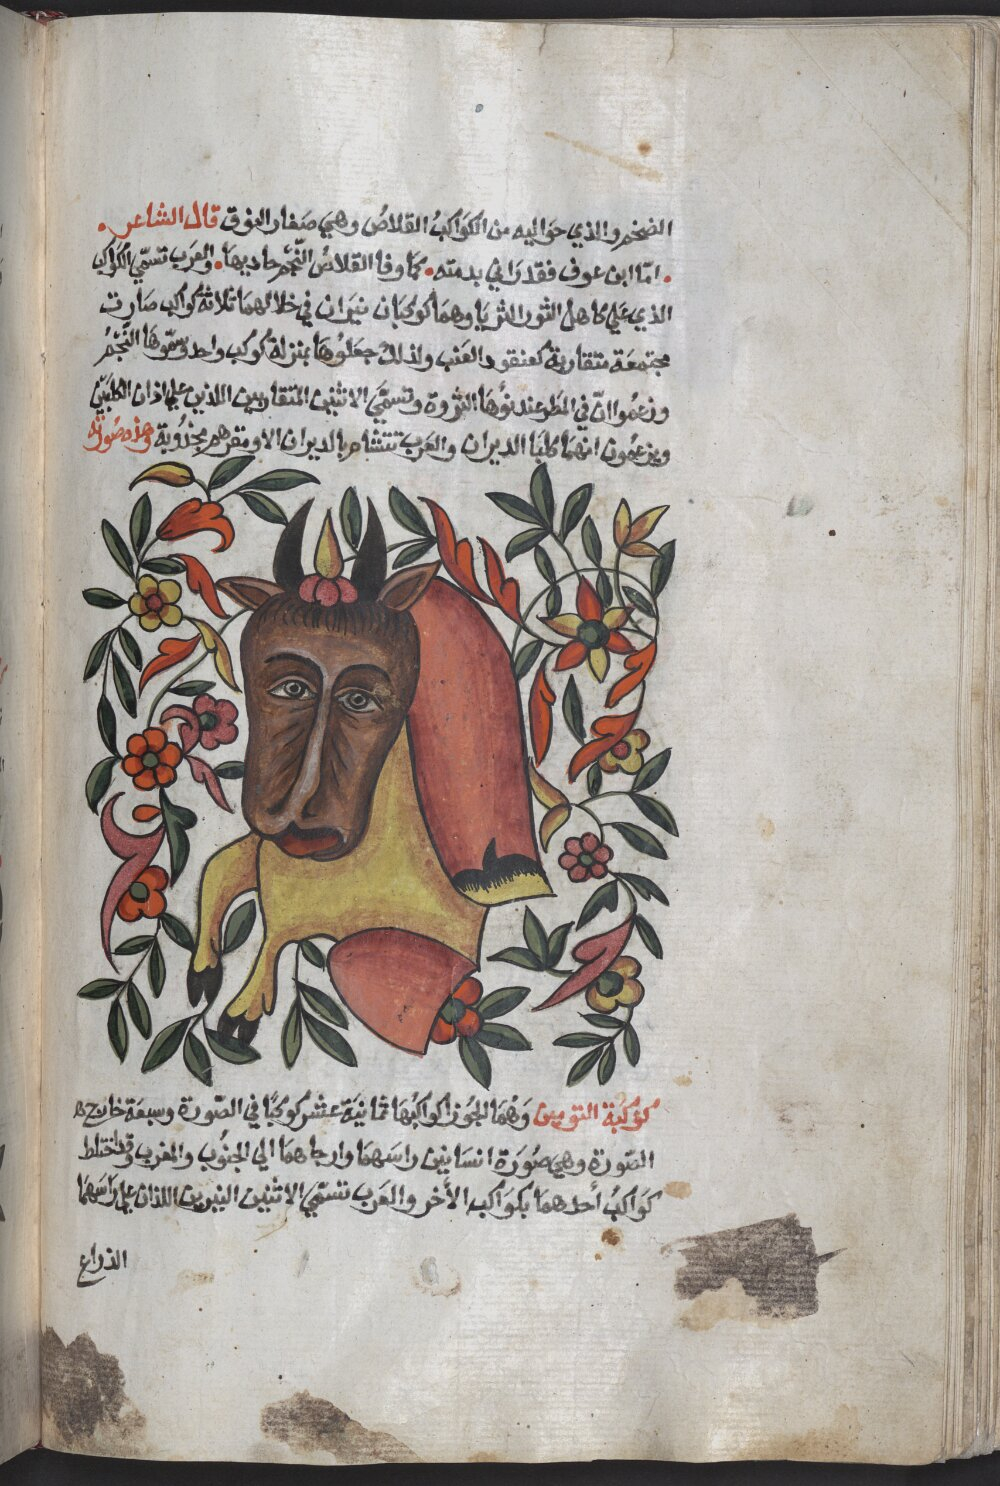 الضخم والذي حواليه من الكَوَاكبُ القلاصُ وهي صَفار النوق قال الشاعر.
. امّا ابن عوف فقد راني بدمته. كما وفا القلاصُ النّجم حاديها. والعرب تسمّي الكَوَاكب
الذي علي كاهل الثور الثريا وهمَا كوكبان نيران في خلالهمَا ثلاثة كواكب صَارت
مجتمعَة متقاربة كعنقود العنب ولذلك جعلُوهَا بمنزلة كوكب واحد وسمّوهَا النّجمُ
وزعمُوا انّ في المطر عند نؤهَا الثروة وتسمّي الاثنين المتقاربين اللذين علي اذان الكلبَين
ويزعمُون انهمَا كلبَا الدبران والعرب تتشاءم بالدبران وهذه صُورته
كوكبَة التومين وهُمَا الجوزا كواكبُها ثمانية عشر كوكبًا في الصّورة وسبعَة خارج
الصّورة وهي صُورَة انسانين راسَهمَا وارجلهمَا الي الجنُوب والمغرب وقد اختلط
كوَاكبُ أحدهمَا بكوَاكب الأخر والعرب تسمّي الاثنين النيرين اللذان علي راسَهمَا
الذراع